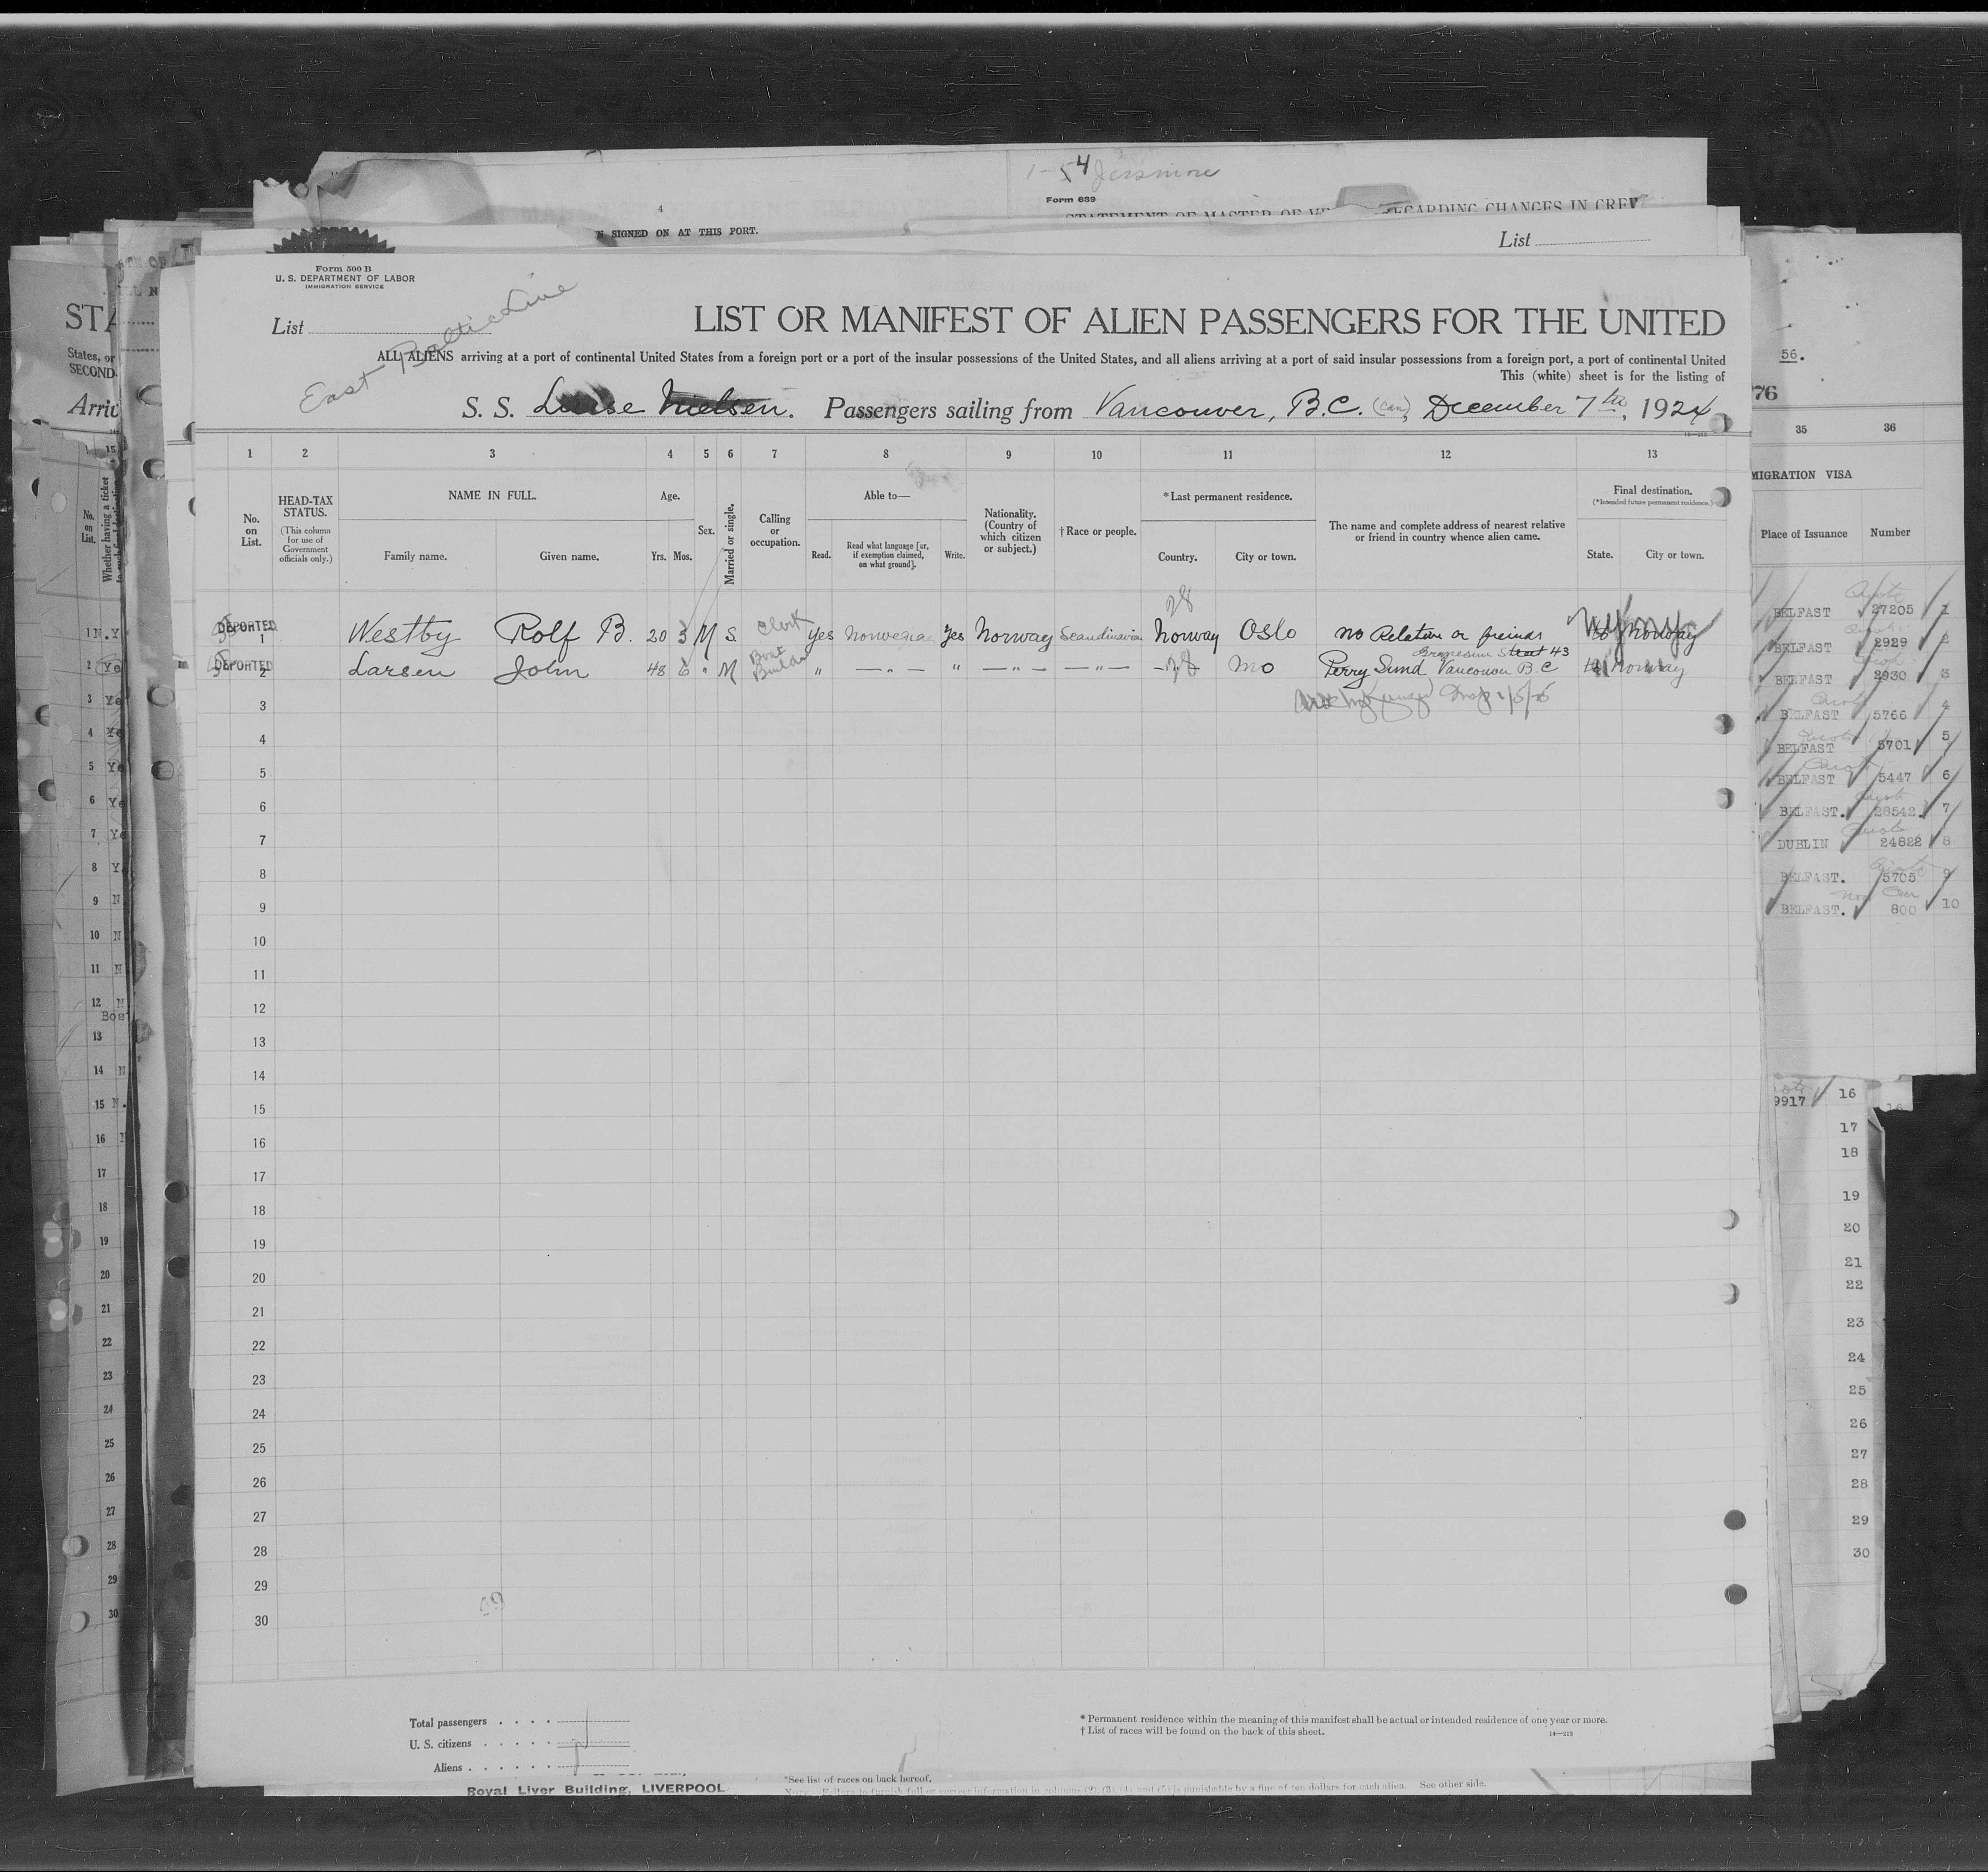 1-54 Jessmore
Form 689
STATEMENT OF MASTER OF VE REGARDING CHANGES IN CREW
4
N SIGNED ON AT THIS PORT.
List
Form 500 B
U. S. DEPARTMENT OF LABOR
IMMIGRATION SERVICE
List
East Baltic Line
LIST OR MANIFEST OF ALIEN PASSENGERS FOR THE UNITED
ALL ALIENS arriving at a port of continental United States from a foreign port or a port of the insular possessions of the United States, and all aliens arriving at a port of said insular possessions from a foreign port, a port of continental United
This (white) sheet is for the listing of
S. S. Louise Nielsen. Passengers sailing from Vancouver, B.C. (Can), December 7th, 1924
1 2 3 4 5 6 7 8 9 10 11 12 13
No. on List.
HEAD-TAX STATUS.
(This column for use of Government officials only.)
NAME IN FULL.
Family name. Given name.
Age.
Yrs. Mos.
Sex.
Married or single.
Calling or occupation.
Able to—
Read. Read what language [or, if exemption claimed, on what ground]. Write.
Nationality. (Country of which citizen or subject.)
† Race or people.
* Last permanent residence.
Country. City or town.
The name and complete address of nearest relative or friend in country whence alien came.
Final destination.
(* Intended future permanent residence.)
State. City or town.
DEPORTED 1 Westby Rolf B. 20 3 M S. Clerk Yes Norwegian Yes Norway Scandinavian Norway Oslo no Relative or freinds Norway
DEPORTED 2 Larsen John 48 6 " M Boat Builder " — " — " — " — — " — Mo Perry Sund Vancouver B.C 43 Norway
3
4
5
6
7
8
9
10
11
12
13
14
15
16
17
18
19
20
21
22
23
24
25
26
27
28
29
30
Total passengers
U. S. citizens
Aliens
* Permanent residence within the meaning of this manifest shall be actual or intended residence of one year or more.
† List of races will be found on the back of this sheet.
14—213
Royal Liver Building, LIVERPOOL
*See list of races on back hereof.
NOTE.—Failure to furnish full or correct information in columns (2), (3), (4), and (5) is punishable by a fine of ten dollars for each alien. See other side.
STA
States, or
SECOND-
No. on List.
Whether having a ticket
56.
76
35 36
MIGRATION VISA
Place of Issuance Number
BELFAST 27205 1
BELFAST 2929 2
BELFAST 2930 3
BELFAST 5766 4
BELFAST 5701 5
BELFAST 5447 6
BELFAST. 28542. 7
DUBLIN 24822 8
BELFAST. 5705 9
BELFAST. 800 10
9917 16
17
18
19
20
21
22
23
24
25
26
27
28
29
30